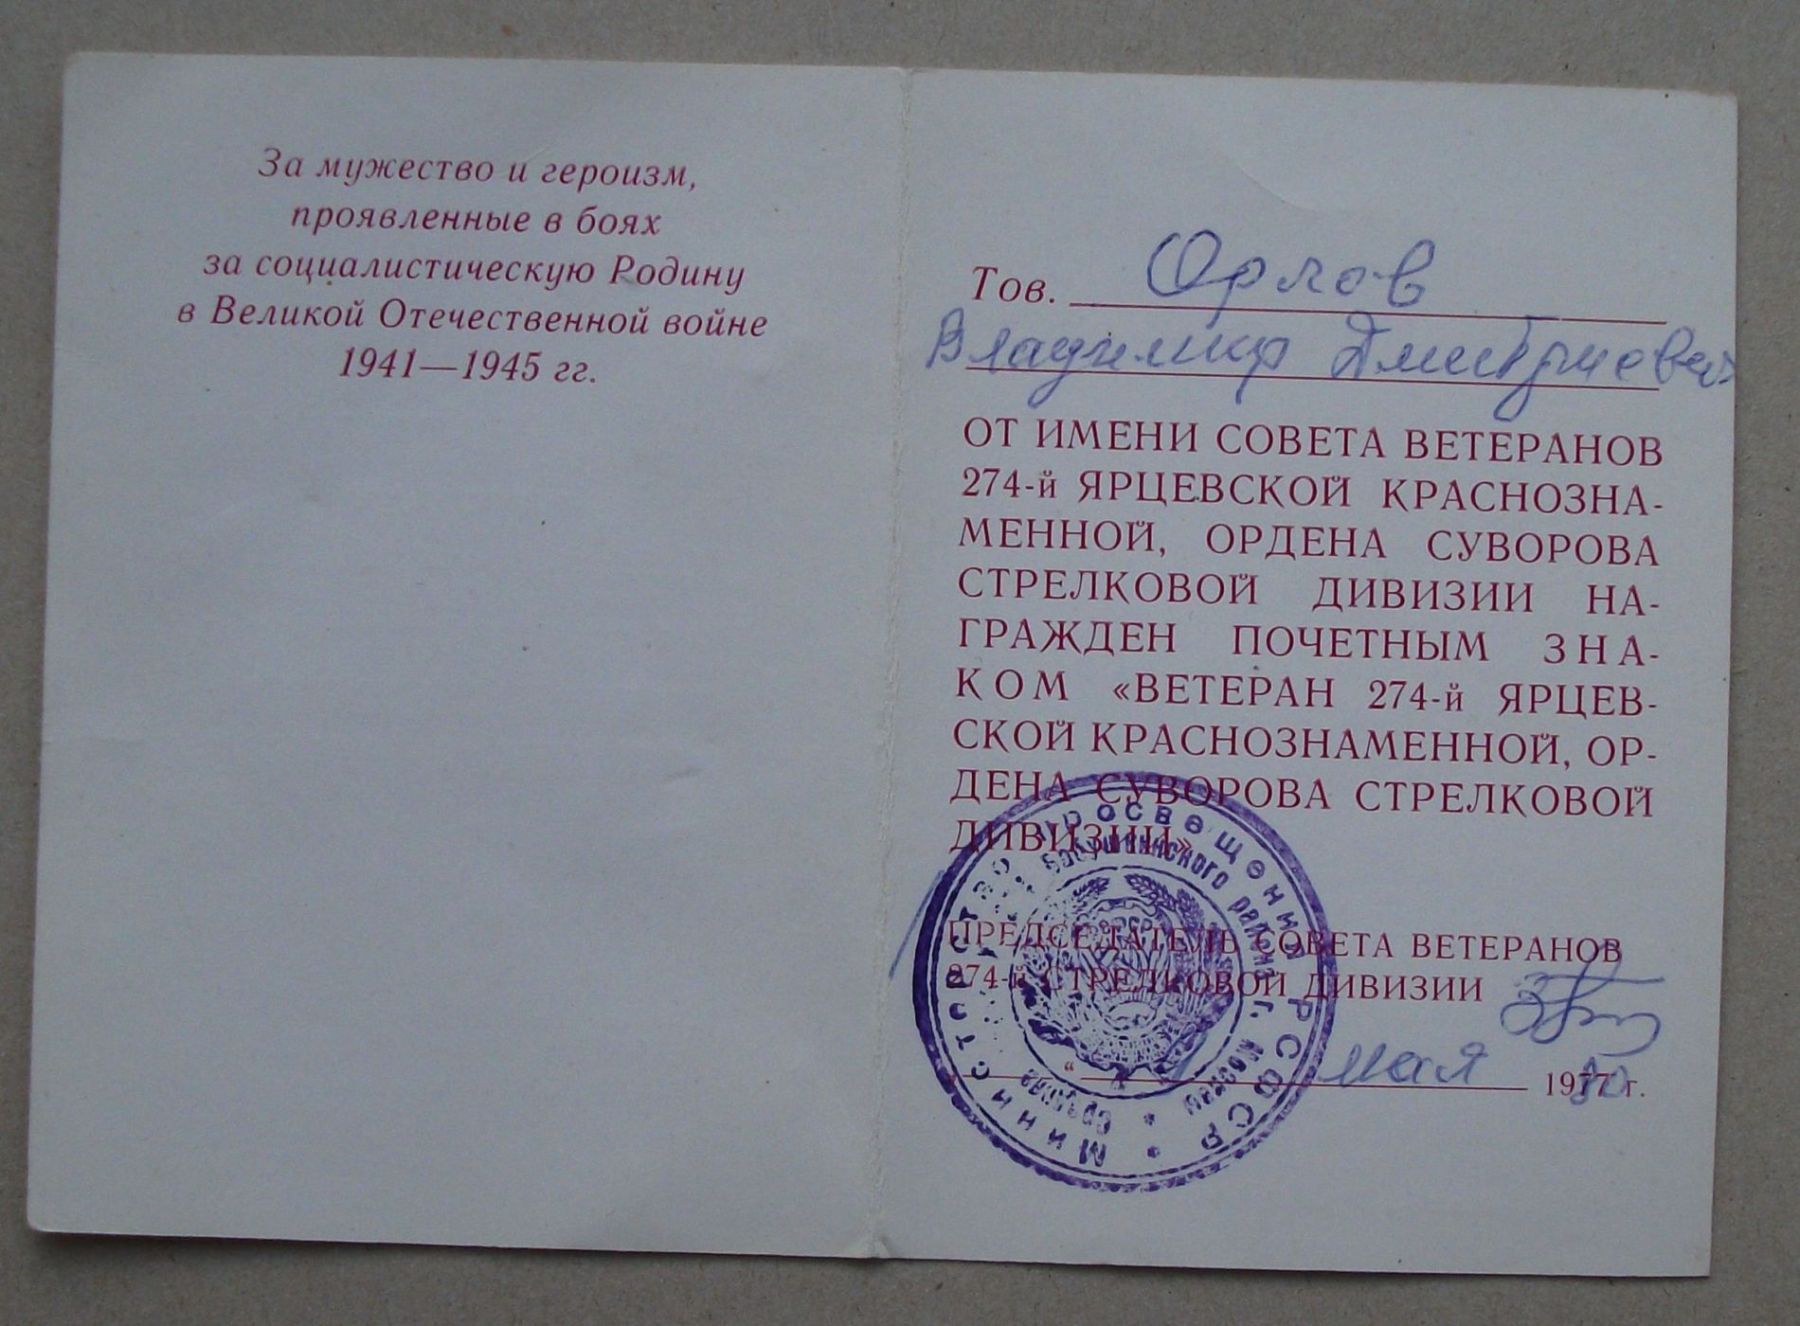 За мужество и героизм,
проявленные в боях
за социалистическую Родину
в Великой Отечественной войне
1941—1945 гг.
Тов. Орлов
Владимир Дмитриевич
ОТ ИМЕНИ СОВЕТА ВЕТЕРАНОВ
274-й ЯРЦЕВСКОЙ КРАСНОЗНА-
МЕННОЙ, ОРДЕНА СУВОРОВА
СТРЕЛКОВОЙ ДИВИЗИИ НА-
ГРАЖДЕН ПОЧЕТНЫМ ЗНА-
КОМ «ВЕТЕРАН 274-й ЯРЦЕВ-
СКОЙ КРАСНОЗНАМЕННОЙ, ОР-
ДЕНА СУВОРОВА СТРЕЛКОВОЙ
ДИВИЗИИ»
ПРЕДСЕДАТЕЛЬ СОВЕТА ВЕТЕРАНОВ
274-й СТРЕЛКОВОЙ ДИВИЗИИ
мая 1980 г.
Министерство просвещения РСФСР
Бабушкинского района г. Москвы